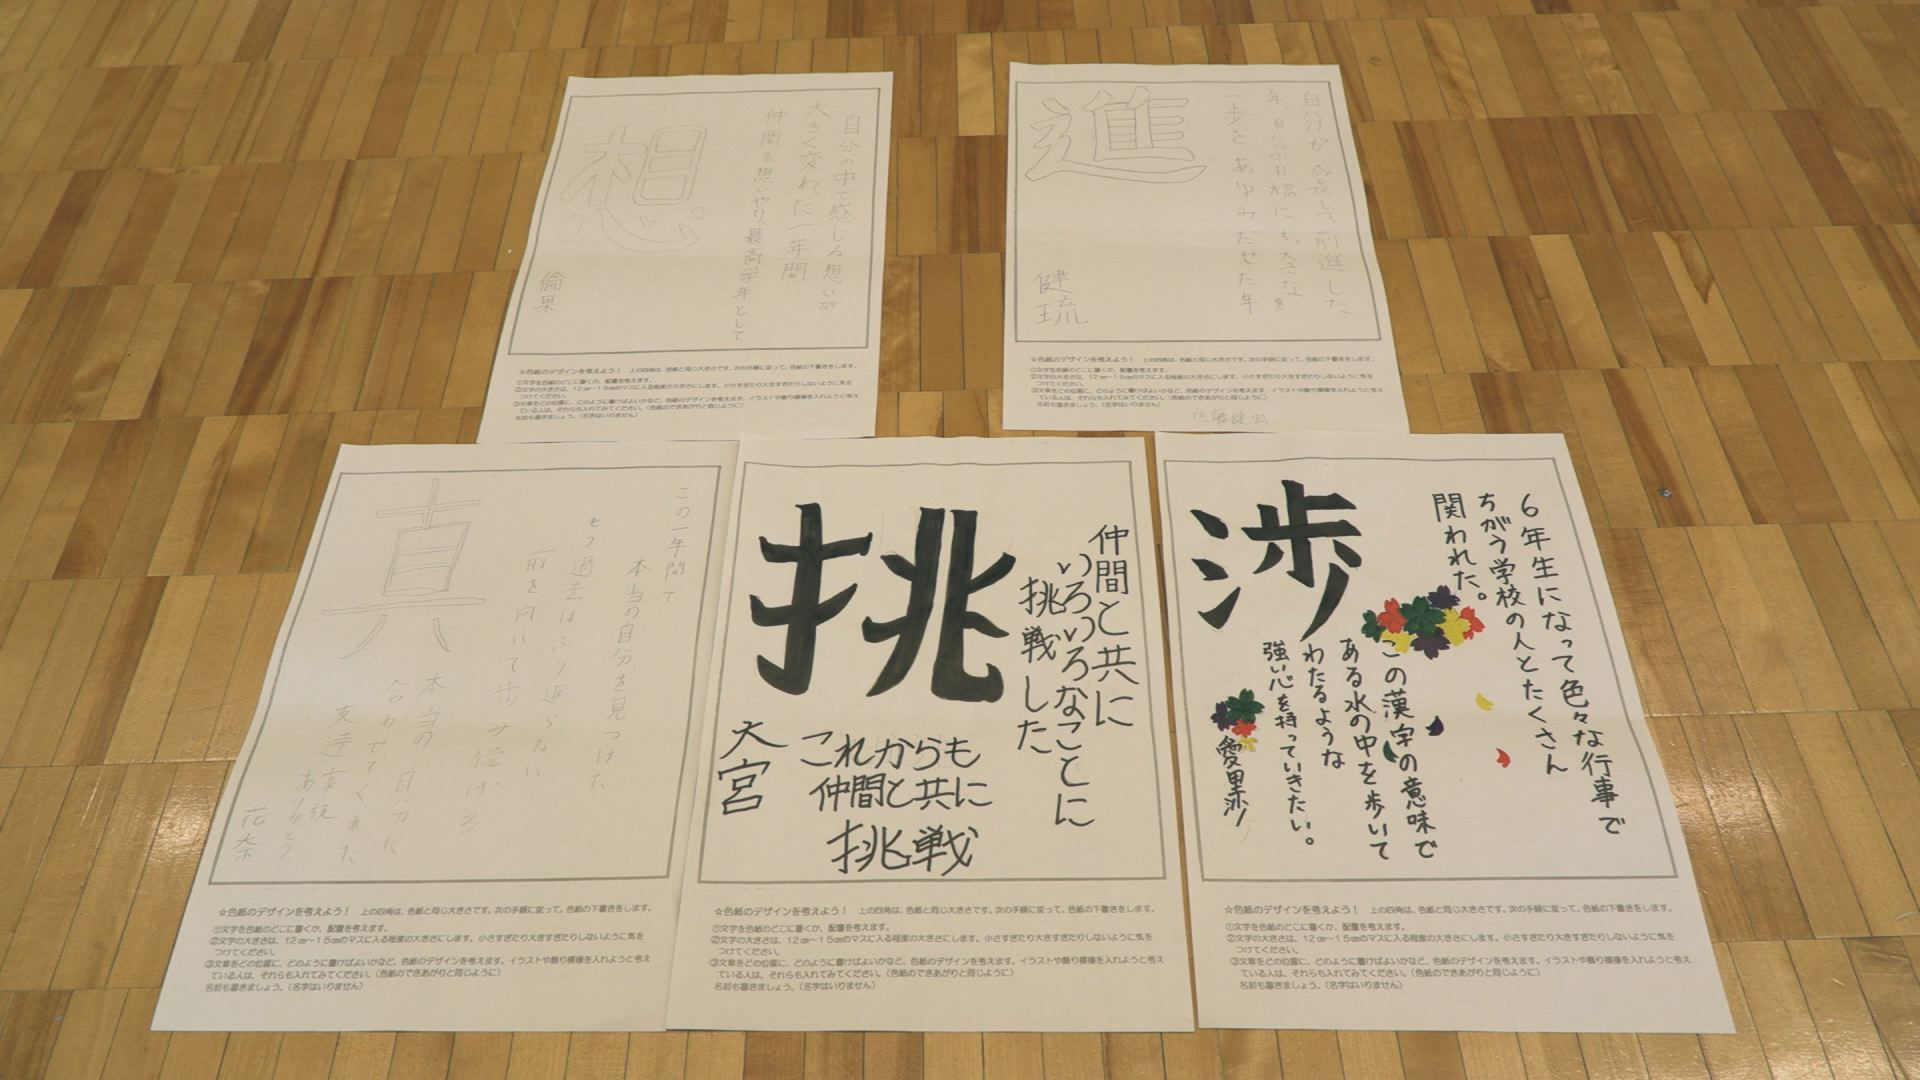 想
自分の中で感じる想いが
大きく変わった一年間
仲間を想いやり最高学年として
倫果
☆色紙のデザインを考えよう! 上の四角は、色紙と同じ大きさです。次の手順に従って、色紙の下書きをします。
①文字を色紙のどこに書くか、配置を考えます。
②文字の大きさは、12㎝~15㎝のマスに入る程度の大きさにします。小さすぎたり大きすぎたりしないように気を
つけてください。
③文章をどの位置に、どのように書けばよいかなど、色紙のデザインを考えます。イラストや飾り模様を入れようと考え
ている人は、それらも入れてみてください。(色紙のできあがりと同じように)
名前も書きましょう。(名字はいりません)
進
自分が成長して前進した
年。自分の目標にも、大きな
一歩をあゆみだせた年
健琉
☆色紙のデザインを考えよう! 上の四角は、色紙と同じ大きさです。次の手順に従って、色紙の下書きをします。
①文字を色紙のどこに書くか、配置を考えます。
②文字の大きさは、12㎝~15㎝のマスに入る程度の大きさにします。小さすぎたり大きすぎたりしないように気を
つけてください。
③文章をどの位置に、どのように書けばよいかなど、色紙のデザインを考えます。イラストや飾り模様を入れようと考え
ている人は、それらも入れてみてください。(色紙のできあがりと同じように)
名前も書きましょう。(名字はいりません)
佐藤健琉
真
この一年間で
本当の自分を見つけた
もう過去はふり返らない
前を向いて歩み続ける
本当の自分に
合わせてくれた
友達家族
ありがとう
花奈
☆色紙のデザインを考えよう! 上の四角は、色紙と同じ大きさです。次の手順に従って、色紙の下書きをします。
①文字を色紙のどこに書くか、配置を考えます。
②文字の大きさは、12㎝~15㎝のマスに入る程度の大きさにします。小さすぎたり大きすぎたりしないように気を
つけてください。
③文章をどの位置に、どのように書けばよいかなど、色紙のデザインを考えます。イラストや飾り模様を入れようと考え
ている人は、それらも入れてみてください。(色紙のできあがりと同じように)
名前も書きましょう。(名字はいりません)
挑
仲間と共に
いろいろなことに
挑戦した
これからも
仲間と共に
挑戦
大宮
☆色紙のデザインを考えよう! 上の四角は、色紙と同じ大きさです。次の手順に従って、色紙の下書きをします。
①文字を色紙のどこに書くか、配置を考えます。
②文字の大きさは、12㎝~15㎝のマスに入る程度の大きさにします。小さすぎたり大きすぎたりしないように気を
つけてください。
③文章をどの位置に、どのように書けばよいかなど、色紙のデザインを考えます。イラストや飾り模様を入れようと考え
ている人は、それらも入れてみてください。(色紙のできあがりと同じように)
名前も書きましょう。(名字はいりません)
渉
6年生になって色々な行事で
ちがう学校の人とたくさん
関われた。
この漢字の意味で
ある水の中を歩いて
わたるような
強い心を持っていきたい。
愛里渉
☆色紙のデザインを考えよう! 上の四角は、色紙と同じ大きさです。次の手順に従って、色紙の下書きをします。
①文字を色紙のどこに書くか、配置を考えます。
②文字の大きさは、12㎝~15㎝のマスに入る程度の大きさにします。小さすぎたり大きすぎたりしないように気を
つけてください。
③文章をどの位置に、どのように書けばよいかなど、色紙のデザインを考えます。イラストや飾り模様を入れようと考え
ている人は、それらも入れてみてください。(色紙のできあがりと同じように)
名前も書きましょう。(名字はいりません)